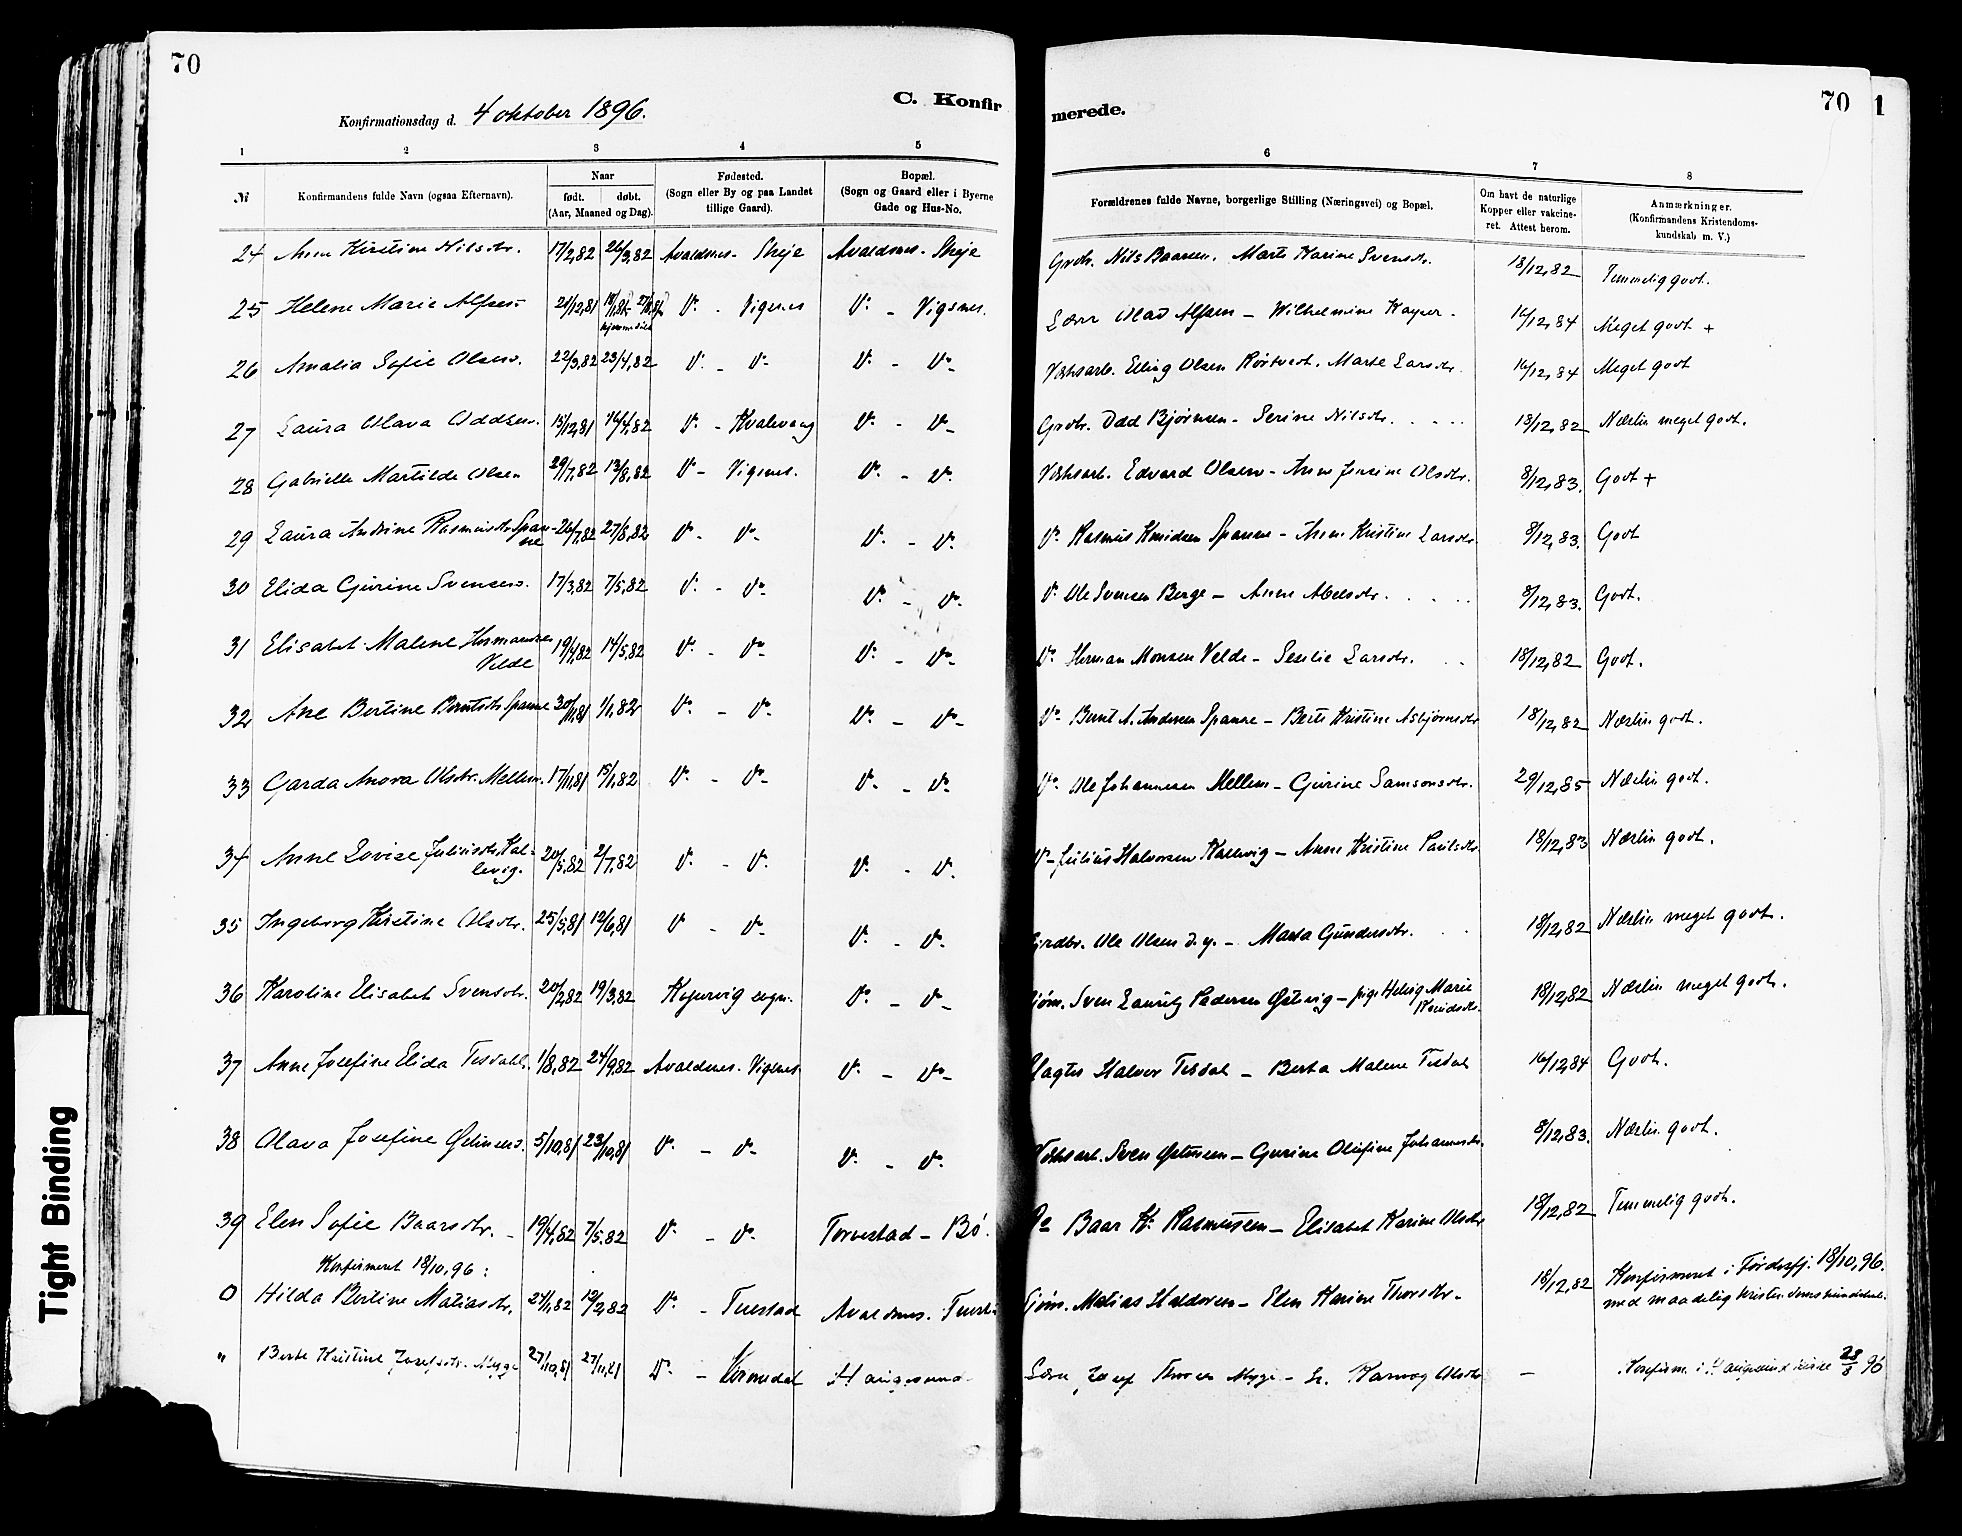 70
C. Konfir
merede.
70
1
Konfirmationsdag d. 4 oktober 1896.
1 2 3 4 5 6 7 8
№ Konfirmandens fulde Navn (ogsaa Efternavn). Naar født. døbt. (Aar, Maaned og Dag). Fødested. (Sogn eller By og paa Landet tillige Gaard). Bopæl. (Sogn og Gaard eller i Byerne Gade og Hus-No. Forældrenes fulde Navne, borgerlige Stilling (Næringsvei) og Bopæl. Om havt de naturlige Kopper eller vakcineret. Attest herom. Anmærkninger. (Konfirmandens Kristendomskundskab m. V.)
24 Anne Kirstine Nilsdtr. 17/2,82 26/3,82 Avaldsnes - Skeje Avaldsnes - Skeje Grdbr. Nils Baarsen. Marte Karine Svensdtr. 18/12,82 Temmelig godt.
25 Helene Marie Alfsen 21/12,81 V. - Vigsnes V. - Vigsnes. Lærer Olav Alfsen - Wilhelmine Kayser. 16/12,84 Meget godt +
26 Amalia Sofie Olsen. 22/3,82 23/4,82 V. - V. V. - V. Værksarb. Elling Olsen Rørtvedt. Marte Larsdtr. 16/12,84 Meget godt
27 Laura Olava Oddsen. 15/12,81 16/4,82 V. - Kvalevaag V. - V. Grdbr. Odd Bjørnsen - Serine Nilsdtr. 18/12,82 Næsten meget godt.
28 Gabrielle Martilde Olsen 29/7,82 13/8,82 V - Vigsnes. V. - V. Værksarb. Edvard Olsen - Anne Jensine Olsdtr. 8/12,83. Godt +
29 Laura Andrine Rasmusdtr Spanne 26/7,82 27/8,82 V. - V. V. - V. V. Rasmus Knudsen Spanne - Anne Kristine Larsdtr. 8/12,83. Godt
30 Elida Gurine Svensen. 17/3,82 7/5,82 V. - V. V. - V. V. Ole Svensen Berge - Anne Abelsdtr. 8/12,83. Godt.
31 Elisabet Malene Hermandsen Velde 19/4,82 14/5,82 V. - V. V. - V. V. Herman Monsen Velde - Sesilie Larsdtr. 18/12,82 Godt.
32 Ane Bertine Berntsdtr Spanne 30/11,81 1/1,82 V. - V. V. - V. V. Bernt A. Andersen Spanne - Berte Kristine Asbjørnsdtr 18/12,82 Næsten godt.
33 Garda Anora Olsdtr. Mellem. 17/11,81 15/1,82 V. - V. V. - V. V. Ole Johannesen Mellem - Gurine Samsonsdtr. 29/12,85 Næsten godt.
34 Anne Lovise Juliusdtr. Kallevig. 20/5,82 2/7,82 V. - V. V. - V. V. - Julius Halvorsen Kallevig - Anne Kristine Paulsdtr 18/12,83 Næsten godt.
35 Ingeborg Kristine Olsdtr. 25/5,81 12/6,81 V - V. V. - V. Grdbr. Ole Olsen d.y. - Marta Gundersdtr. 18/12,82 Næsten meget godt.
36 Karoline Elisabet Svensdtr. 20/2,82 19/3,82 Kopervig sogn. V. - V. Gjøm. Sven Lauritz Pedersen Østevig - pige Helvig Marie Knudsdtr. 18/12,82 Næsten meget godt.
37 Anne Josefine Elida Tesdahl. 1/8,82 24/9,82 Avaldsnes. Vigsnes V. - V. Slagter Halvor Tesdal - Berta Malene Tesdal 16/12,84 Godt.
38 Olava Josefine 5/10,81 23/10,81 V. - V. V. - V. Værksarb. Sven - Gurine Olufine Johannesdtr. 8/12,83. Næsten godt.
39 Elen Sofie Baarsdtr. - 19/4,82 7/5,82 V. - V. Torvestad - Bø. Do Baar K. Rasmussen - Elisabet Karine Olsdtr 18/12,82 Temmelig godt.
Konfirmeret 18/10,96:
0 Hilda Bertine Matiasdtr. 24/1,82 12/2,82 V. - Tuestad Avaldsnes. Tuesta Gjøm. Matias Haldorsen - Elen Karine Thorsdtr - 18/12,82 Konfirmeret i Førdesfj. 18/10,96. med maadelig kristendomskundskab.
" Berte Kristine Josefsdtr. Myge 27/10,81 27/11,81 V. - Vormedal Haugesund. Lærer Josef Thorsen Myge - h. Karney Olsdtr - Konfirm. i Haugesund kirke 23/8 96